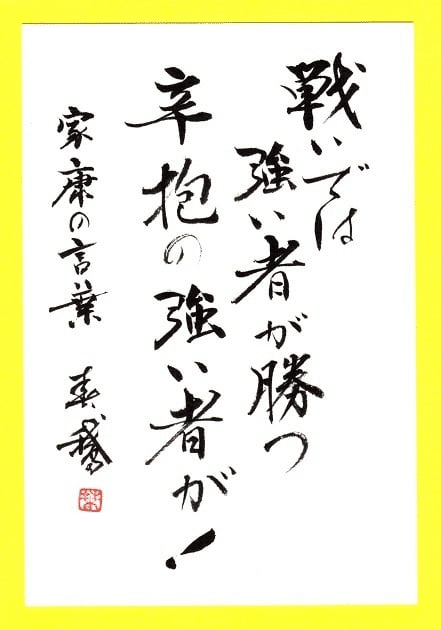 戦いでは
強い者が勝つ
辛抱の強い者が!
家康の言葉